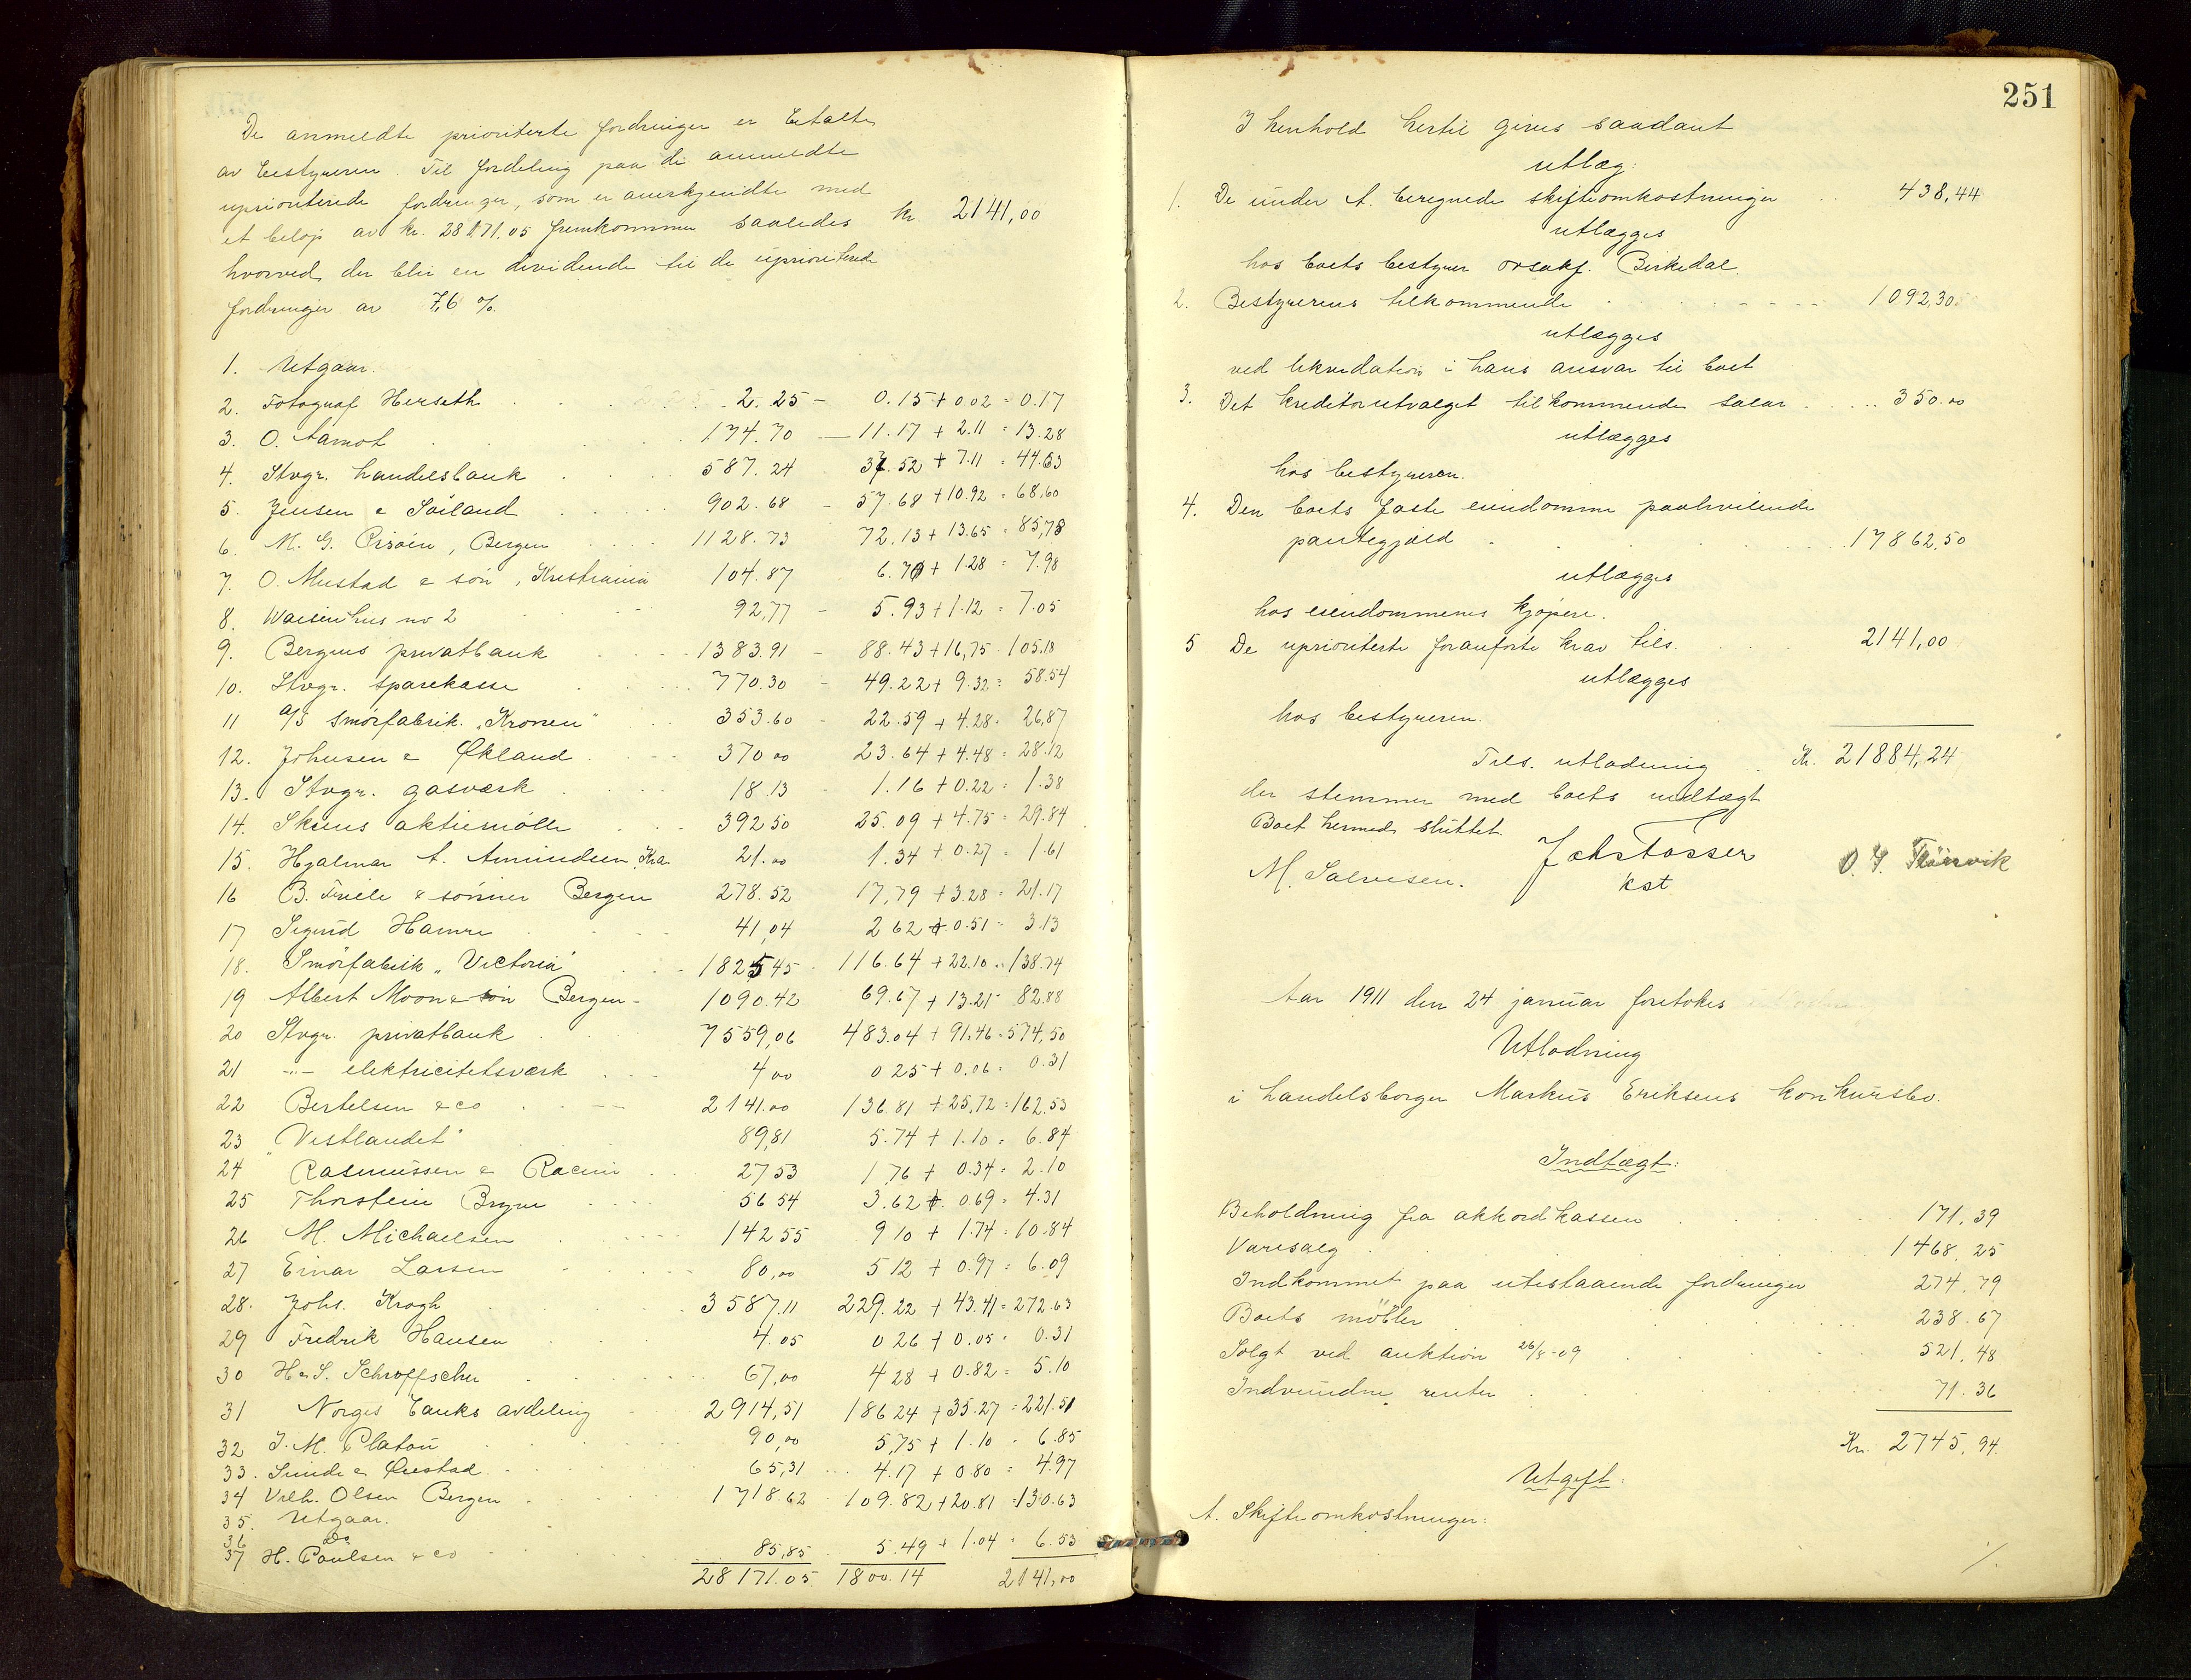 De anmeldte prioriterte fordringer er betalte
av bestyreren. Til fordeling paa de anmeldte
uprioriterede fordringer, som er anerkjendte med
et beløp av kr. 28171.05 fremkommer saaledes kr. 2141,00
hvorved der blir en dividende til de uprioriterede
fordringer av 7,6 %.
1. Utgaar.
2. Fotograf Herseth 2.25 - 0.15 + 0 02 = 0.17
3. O. Aamot 174.70 - 11.17 + 2.11 = 13.28
4. Stvgr. handelsbank 587.24 37.52 + 7.11 = 44.63
5. Jensen & Soiland 902.68 - 57.68 + 10.92 = 68,60
6. M. G. Crisoin, Bergen 1128.73 72.13 + 13.65 = 85,78
7. O. Mustad & søn, Kristiania 104.87 6.70 + 1.28 = 7.98
8. Waisenhus no 2 92,77 - 5.93 + 1.12 = 7.05
9. Bergens privatbank 1383.91 - 88.43 + 16,75 - 105.18
10. Stvgr. sparekasse 770.30 - 49.22 + 9.32 = 58.54
11 A/S smörfabrik. „Kronen" 353.60 - 22.59 + 4.28 = 26,87
12. Johnsen & Økland 370 00 23.64 + 4.48 = 28.12
13. Stvgr. gasværk 18.13 - 1.16 + 0.22 = 1.38
14. Skiens aktiemølle 392 50 25.09 + 4.75 = 29.84
15. Hjalmar A. Amundsen, Kra 21.00 1.34 + 0.27 = 1.61
16 B. Friele & sønner Bergen 278.52 17,79 + 3.28 = 21.17
17 Sigurd Hamre 41,04 2 62 + 0.51 = 3.13
18. Smörfabrik „Victoria" 1825 45 116.64 + 22.10 = 138.74
19 Albert Moon & søn Bergen - 1090.42 69.67 + 13.21 - 82.88
20 Stvgr. privatbank 7559,06 483.04 + 91.46 = 574,50
21 -"- elektricitetsværk 4 00 0 25 + 0.06 = 0.31
22 Bertelsen & co 2141.00 136.81 + 25,72 = 162.53
23 „Vestlandet" 89,81 5.74 + 1.10 = 6.84
24 Rasmussen & Racine 27 53 1 76 + 0.34 = 2.10
25 Thorstein Bryne 56 54 3.62 + 0.69 = 4.31
26 M. Michaelsen 142 55 9 10 + 1.74 = 10.84
27 Einar Larsen 80,00 5 12 + 0.97 = 6.09
28. Johs. Krogh 3587.11 229.22 + 43.41 = 272.63
29 Fredrik Hansen 4.05 0 26 + 0.05 = 0.31
30 H. & S. Schroffscher 67,00 4 28 + 0.82 = 5.10
31 Norges banks avdeling 2914,51 186 24 + 35.27 = 221.51
32 J. M. Platou 90,00 5,75 + 1.10 = 6.85
33. Sunde & Ørestad 65,31 4.17 + 0.80 = 4.97
34 Vilh. Olsen Bergen 1718.62 109.82 + 20.81 = 130.63
35. Utgaar.
36 Do
37 H. Poulsen & co 85,85 5.49 + 1.04 = 6.53
28171.05 1800.14 2141,00
251
I henhold hertil gives saadant
utlæg:
1. De under A. beregnede skifteomkostninger 438,44
utlægges
hos boets bestyrer orsakf. Birkedal.
2. Bestyrerens tilkommende 1092,30
utlægges
ved likvidation i hans ansvar til boet
3. Det kreditorutvalget tilkommende salær 350.00
utlægges
hos bestyreren.
4. Den boets faste eiendomme paahvilende
pantegjæld 17862,50
utlægges
hos eiendommenes kjøpere.
5 De uprioriterte foranførte krav tils. 2141,00
utlægges
hos bestyreren.
Tils. utlodning Kr. 21884,24
der stemmer med boets indtægt
Boet hermed sluttet.
M. Salvesen. kst
Aar 1911 den 24 januar foretokes
Utlodning
i handelsborger Markus Eriksens konkursbo.
Indtægt:
Beholdning fra akkordkassen 171,39
Varesalg 1468.25
Indkommet paa utestaaende fordringer 274.79
Boets møbler 238.67
Solgt ved auktion 26/8-09 521.48
Indvundne renter 71.36
Kr. 2745,94.
Utgift:
A. Skifteomkostninger:
%